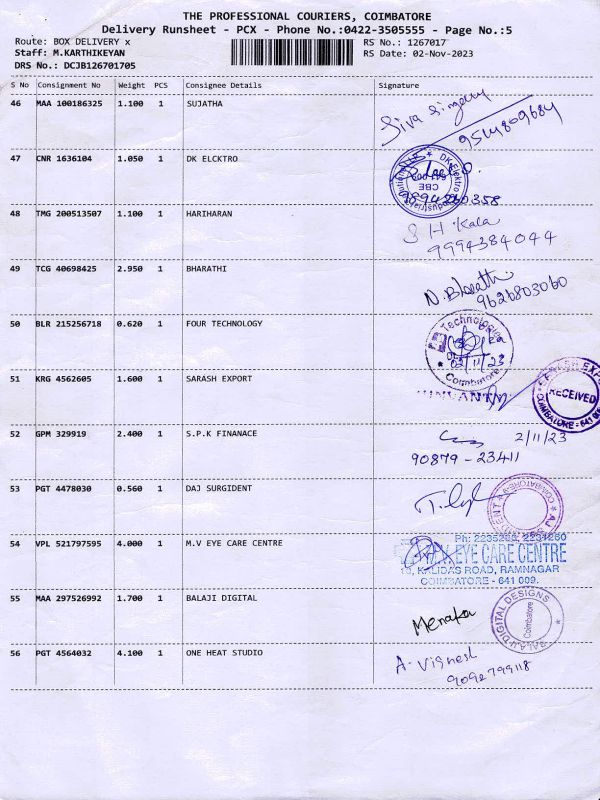 THE PROFESSIONAL COURIERS, COIMBATORE
Delivery Runsheet - PCX - Phone No.:0422-3505555 - Page No.:5
Route: BOX DELIVERY x
RS No.: 1267017
Staff: M.KARTHIKEYAN
RS Date: 02-Nov-2023
DRS No.: DCJB126701705
S No Consignment No Weight PCS Consignee Details Signature
46 MAA 100186325 1.100 1 SUJATHA
9514809684
47 CNR 1636104 1.050 1 DK ELCKTRO
DK Elektro
CBE
9894260358
48 TMG 200513507 1.100 1 HARIHARAN
S H Kala
9994384044
49 TCG 40698425 2.950 1 BHARATHI
N. Bharathi
9626803060
50 BLR 215256718 0.620 1 FOUR TECHNOLOGY
Technologies
02/11/23
Coimbatore
51 KRG 4562605 1.600 1 SARASH EXPORT
RECEIVED
COIMBATORE - 641
52 GPM 329919 2.400 1 S.P.K FINANACE
2/11/23
90879 - 23411
53 PGT 4478030 0.560 1 DAJ SURGIDENT
COIMBATORE
54 VPL 521797595 4.000 1 M.V EYE CARE CENTRE
M.V. EYE CARE CENTRE
KALIDAS ROAD, RAMNAGAR
COIMBATORE - 641 009.
55 MAA 297526992 1.700 1 BALAJI DIGITAL
Menaka
BALAJI DIGITAL DESIGNS
Coimbatore
56 PGT 4564032 4.100 1 ONE HEAT STUDIO
A. Vignesh
9092799118